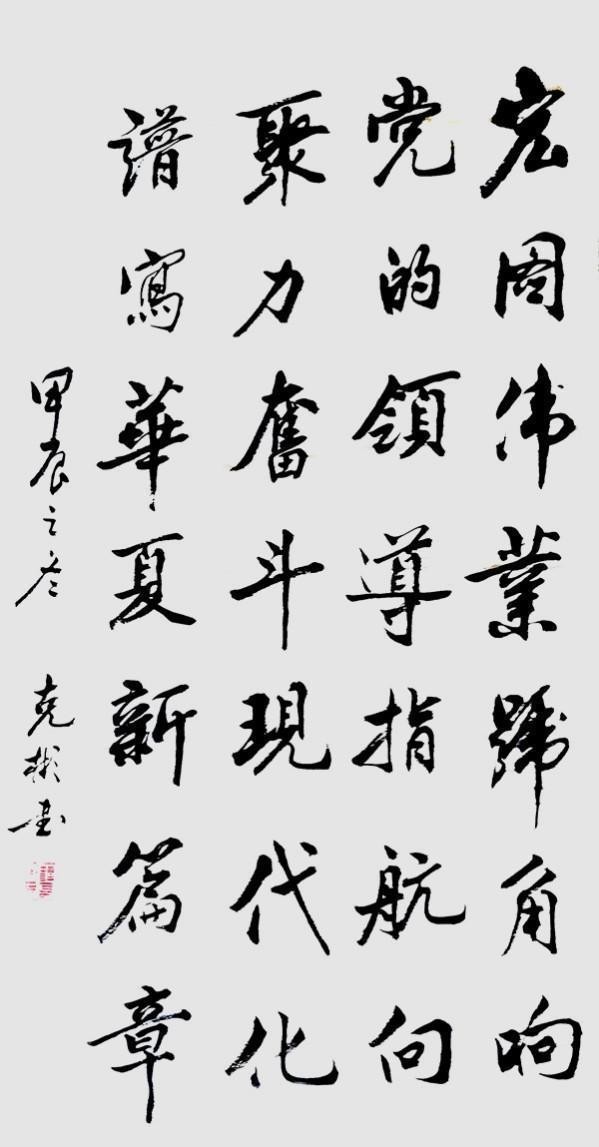 宏图伟業號角响
党的領導指航向
聚力奮斗現代化
譜寫華夏新篇章
甲辰之冬 克彬书